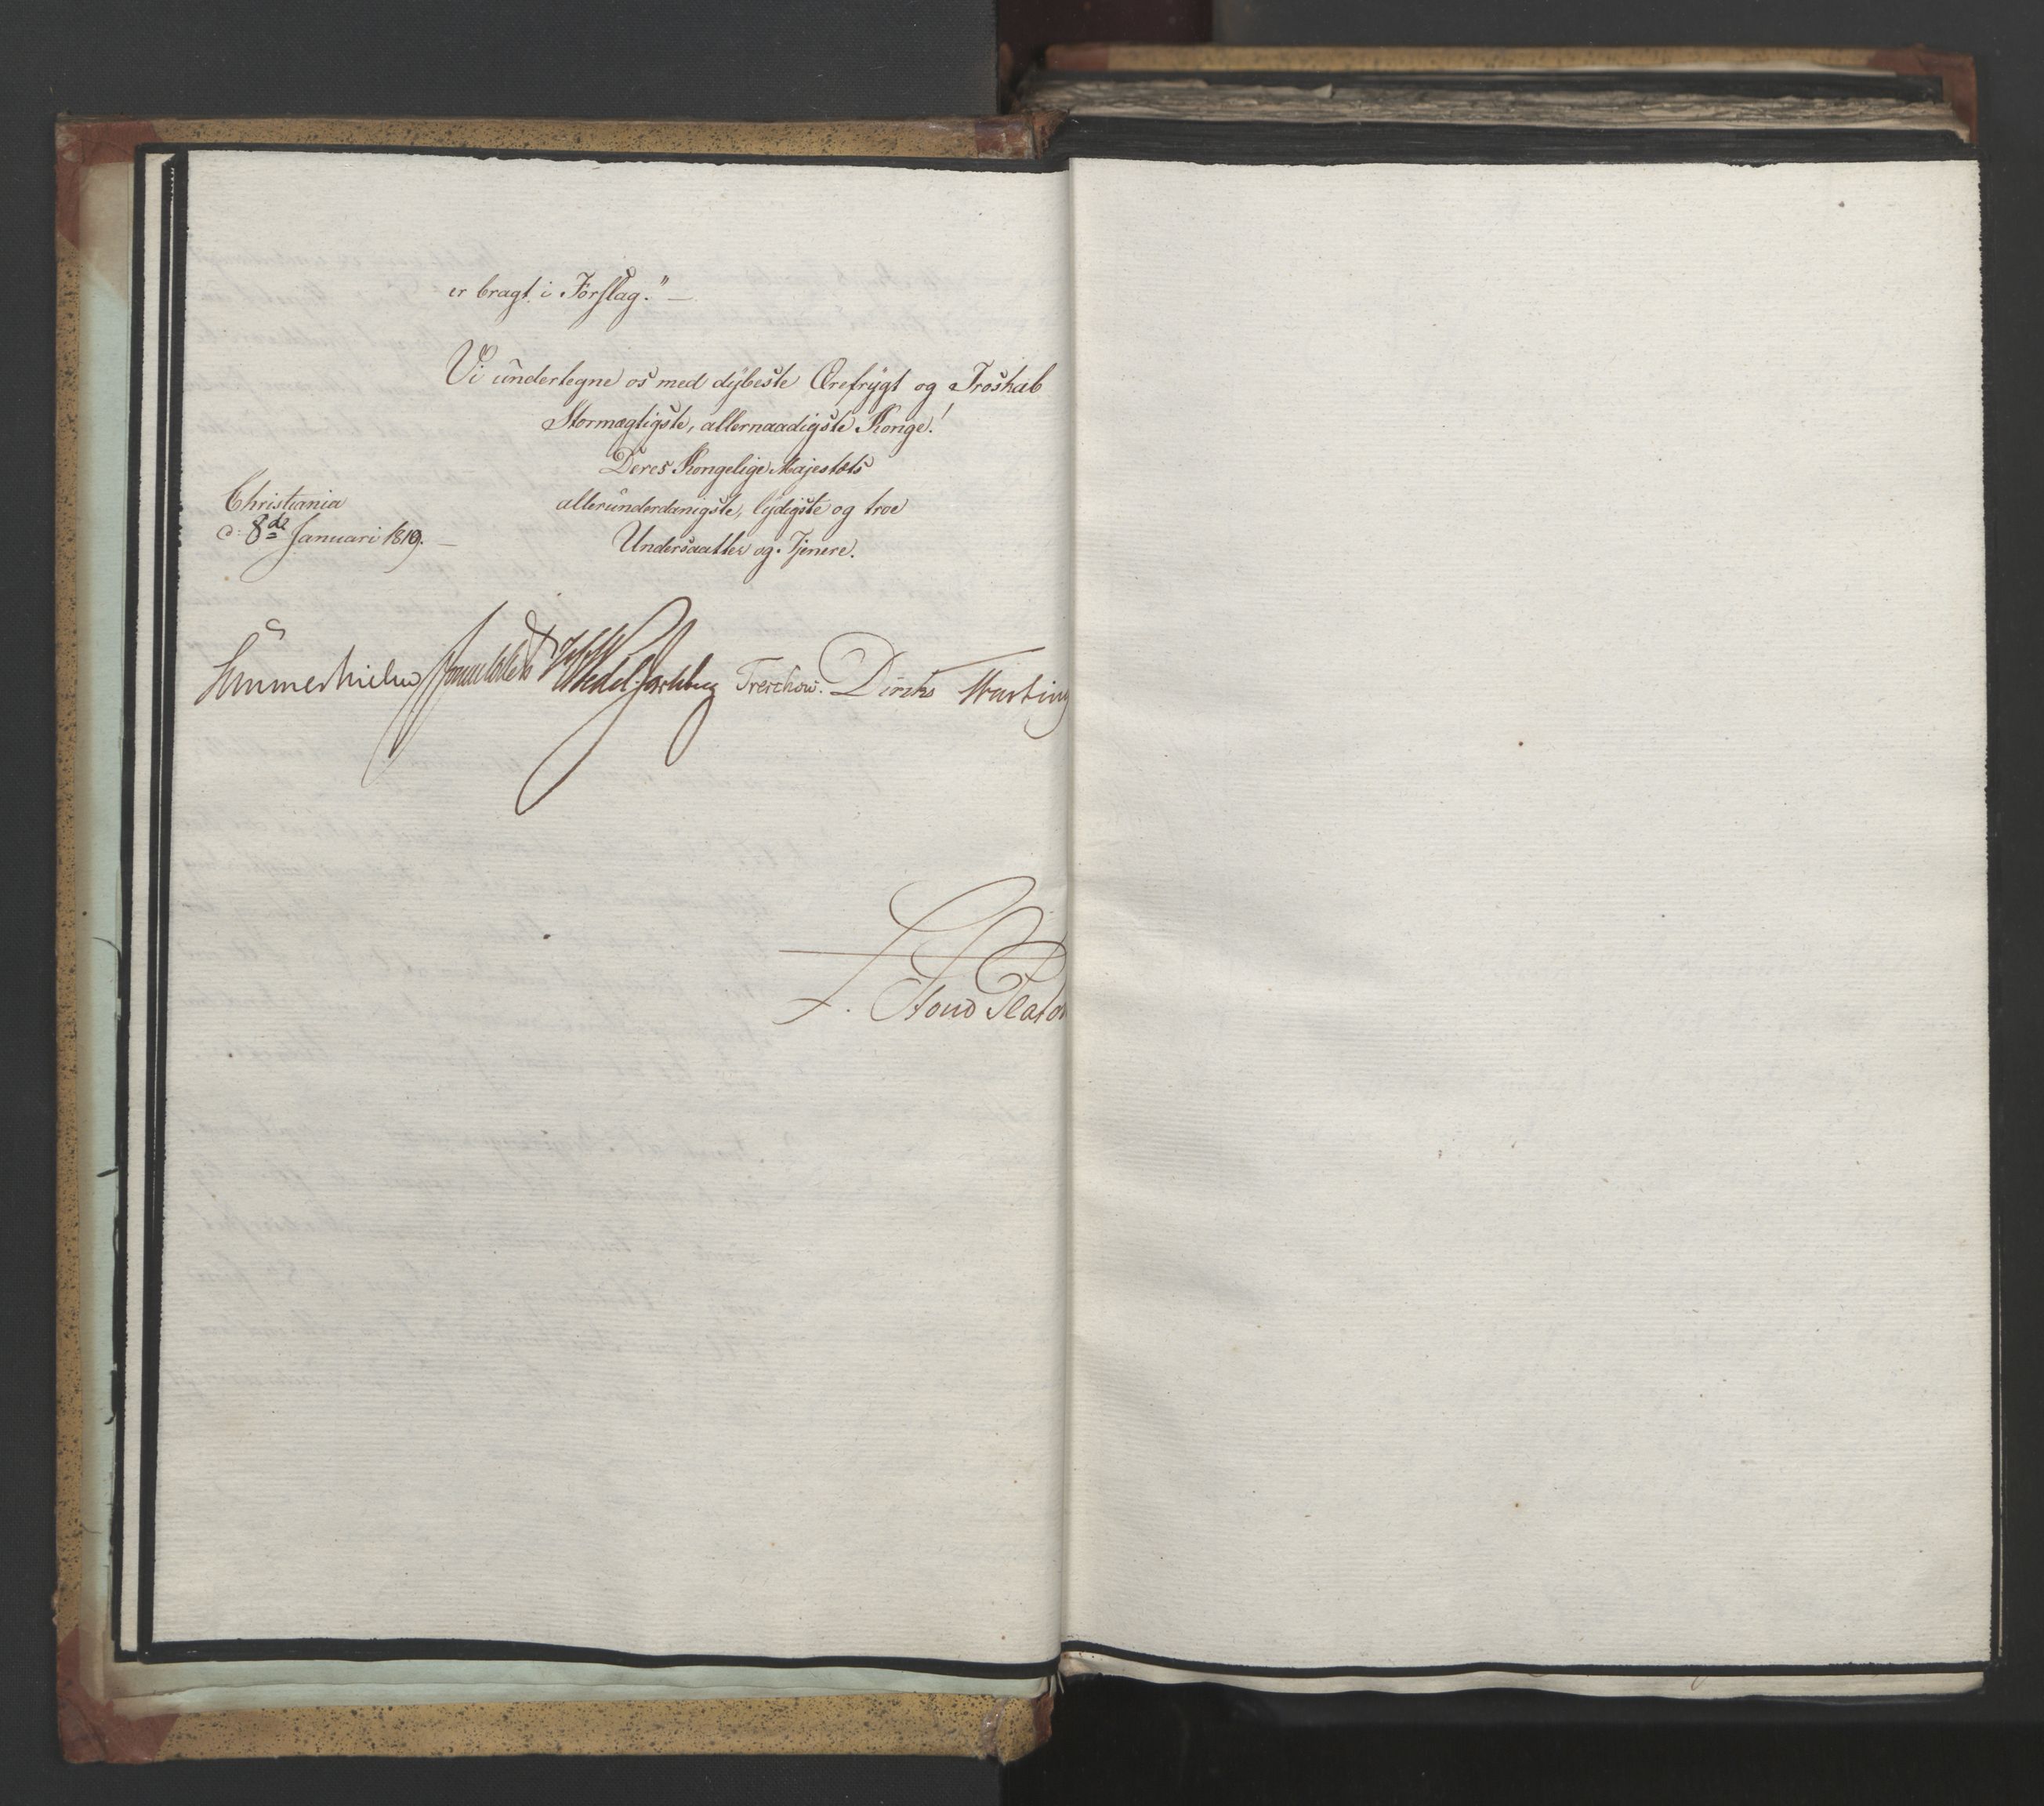 er bragt i Forslag." —
Vi undertegne os med dybeste Ærefrygt og Troskab
Stormægtigste, allernaadigste Konge!
Deres Kongelige Majestæts
allerunderdanigste, lydigste og troe
Undersaatter og Tjenere.
Christiania
d: 8de Januari 1819. —
Sommerhielm Wedel Jarlsberg Treschow. Diriks